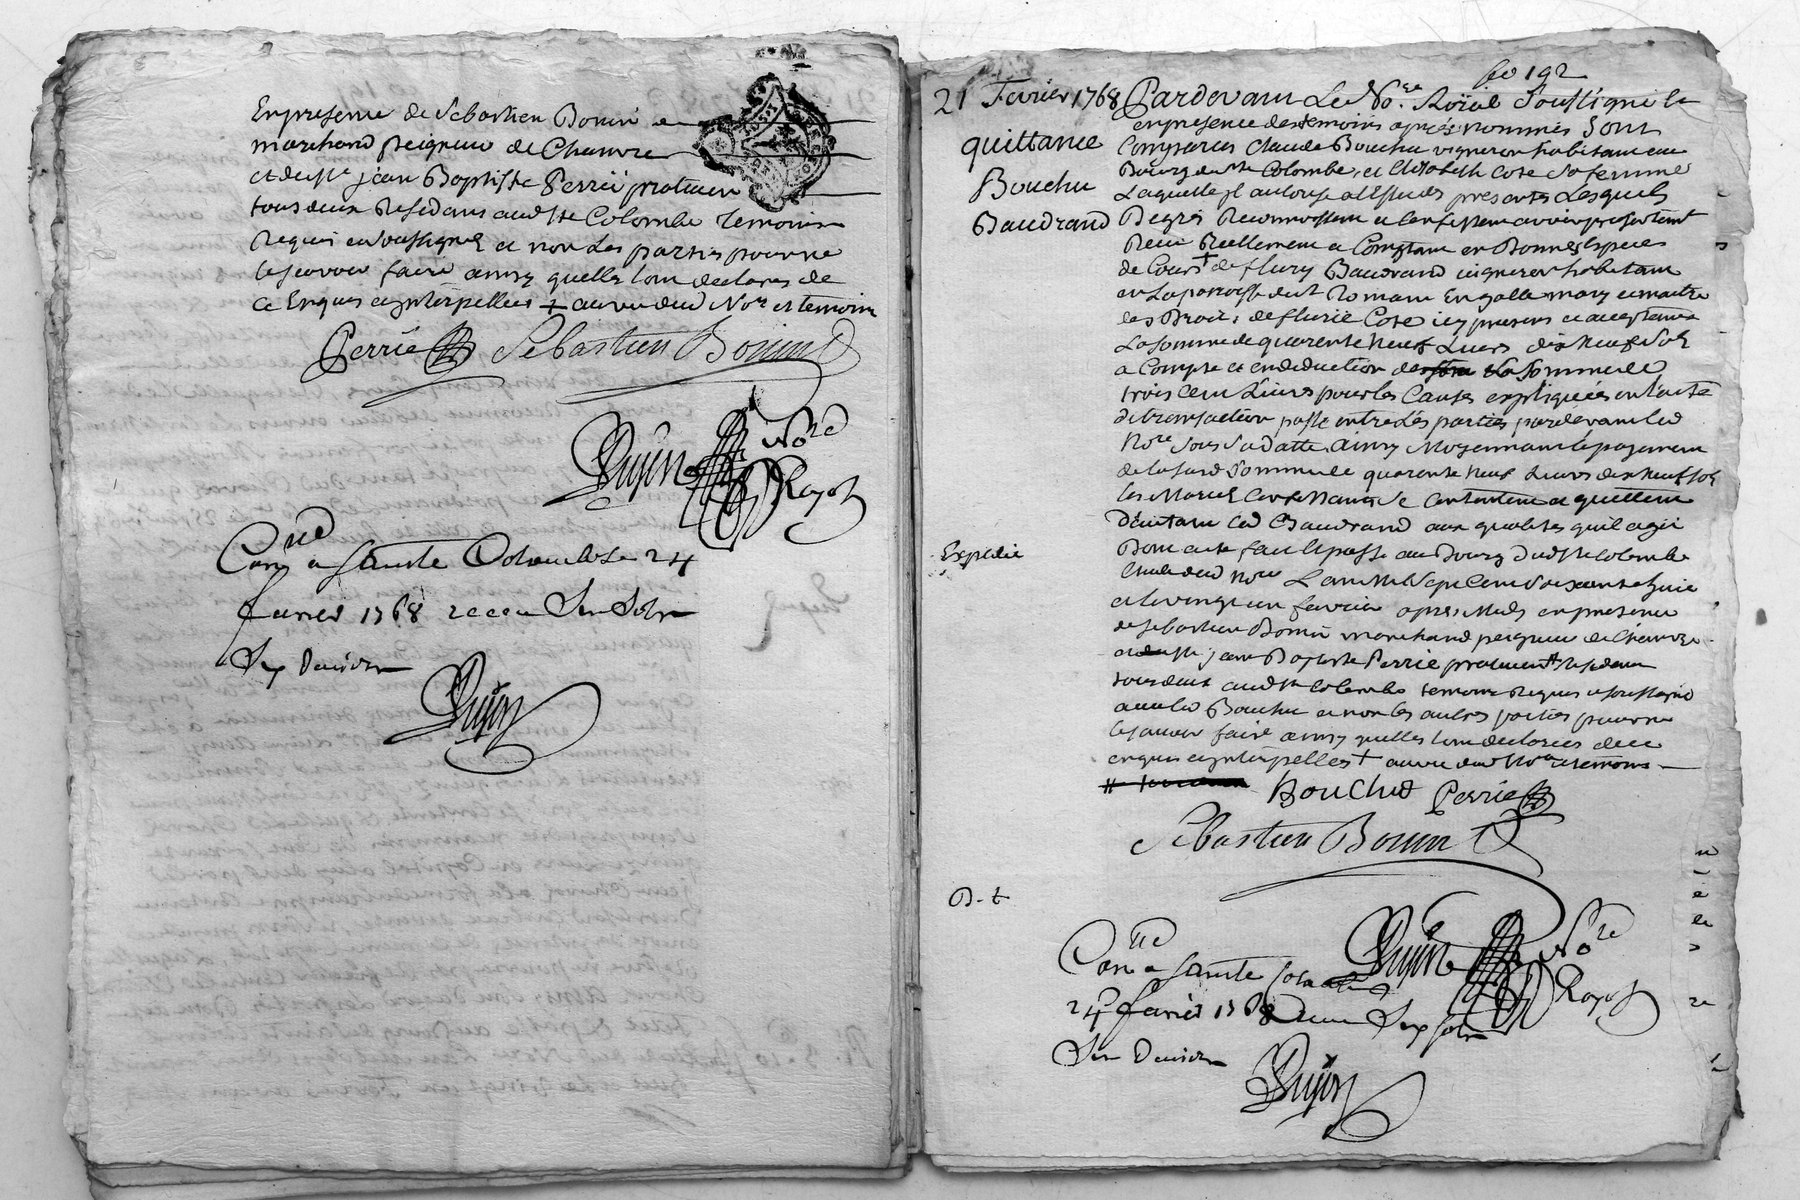 En presense de Sebastien Bonin
marchand peigneur de Chanvre
et de sr jean Baptiste Perrié praticien
tous deux Residans aud Ste Colombe temoins
Requis et soussignés et non Les parties pour ne
le scavoir faire ainsy quelles lont declarés de
ce Enquis et interpellées + au vu dud Nore et temoins
Perrié Sebastien Bonin
Dujon Nore
Royal
Conlle a sainte Colombe le 24
fevrier 1768 receu six sols
six deniers
Dujon
fo 192
21 Fevrier 1768
quittance
Bouchu
Baudrand
Expedié
D. t
Pardevant Le Nore Roïal Soussigné et
en presence des temoins aprés nommés Sont
Comparus Claude Bouchu vigneron habitant au
Bourg de Ste Colombe, et Elisabeth Cote sa femme
Laquelle jl autorise a l'Effet des presentes Lesquels
De gré Reconnoissent et Confessent avoir presentement
Receu Réellement et Comptant en Bonnes Especes
de Cours + de fleury Baudrand vigneron habitant
en La parroisse de st Romain En galle mary et maitre
des Droits de fleurie Cote icy present et acceptant
La somme de quarente neuf Livres dix neuf sols
a Compte et en deduction de La somme de
trois Cent Livres pour les Causes expliquées en l'acte
de transaction passé entre Les parties pardevant led
Nore sous sa datte, ainsy Moyennant le payement
de lasusd somme de quarente neuf Livres dix neuf sols
les Mariés se Contentent et quittent
D'autant led Baudrand aux qualites quil agit
Dont acte fait et passé au Bourg dud Ste Colombe
Etude dud Nore L'an Mil Sept Cent Soixante huit
et le vingt un fevrier apres Midy en presence
de sebastien Bonin marchand peigneur de Chanvre
et de sr jean Baptiste Perrié praticien residans
tous deux aud Ste Colombe temoins Requis et soussignés
avec led Bouchu et non les autres parties pour ne
le scavoir faire ainsy quelles lont declarées de ce
enquis et interpellées + au vu dud Nore et temoins
Bouchud Perrié
Sebastien Bonin
Dujon Nore
Royal
Conlle a sainte Colombe
24 fevrier 1768 Receu Six sols
Six deniers
Dujon